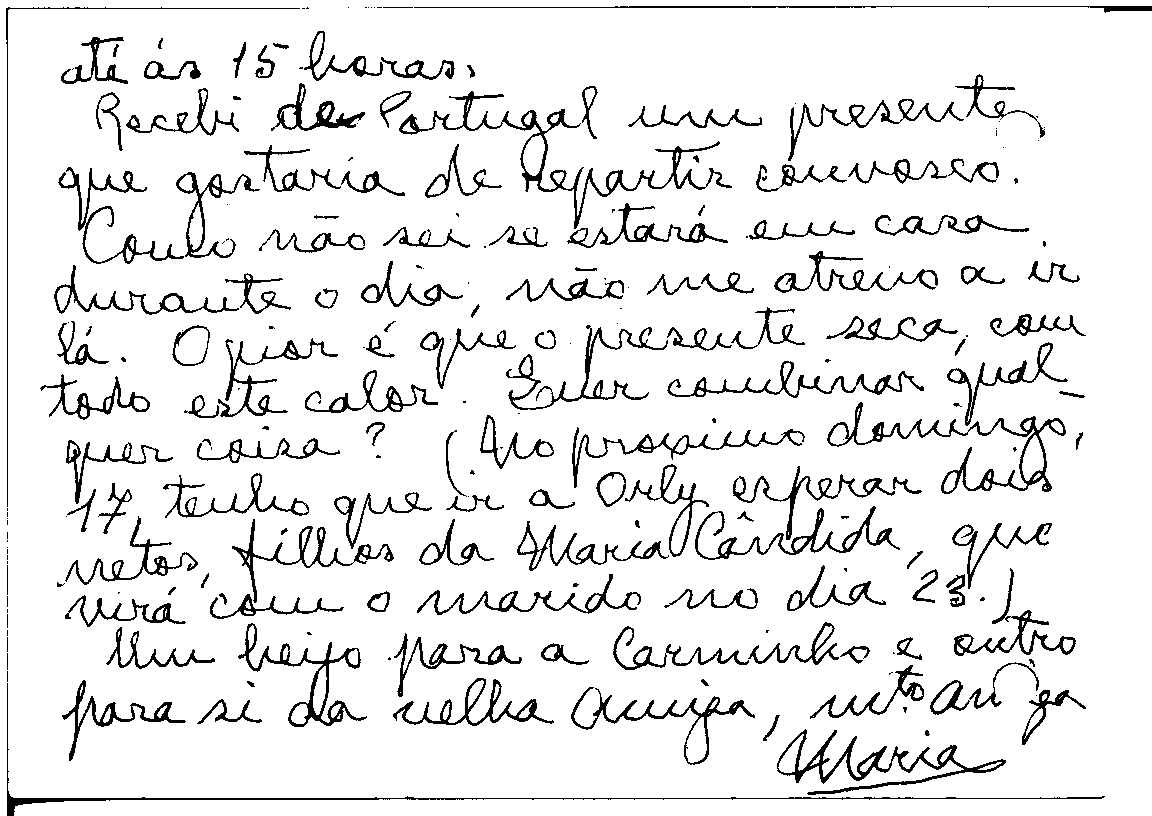 até ás 15 horas.
Recebi de Portugal um presente
que gostaria de repartir convosco.
Como não sei se estará em casa
durante o dia, não me atrevo a ir
lá. O pior é que o presente seca, com
todo este calor. Quer combinar qual-
quer coisa? (No proximo domingo,
17, tenho que ir a Orly esperar dois
netos, filhos da Maria Cândida, que
virá com o marido no dia 23.)
Um beijo para a Carminho e outro
para si da velha amiga, mto amiga
Maria